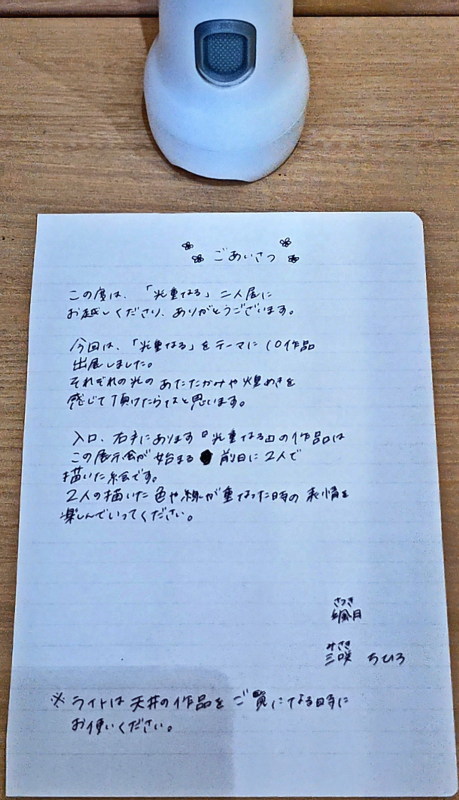 ごあいさつ
この度は、「光重なる」二人展に
お越しくださり、ありがとうございます。
今回は、「光重なる」をテーマに10作品
出展しました。
それぞれの光のあたたかみや煌めきを
感じて頂けたらなと思います。
入口、右手にあります『光重なる』の作品は
この展示会が始まる前日に2人で
描いた絵です。
2人の描いた色や線が重なった時の表情を
楽しんでいってください。
さつき
颯月
みさき
三咲 ちひろ
※ライトは天井の作品をご覧になる時に
お使いください。